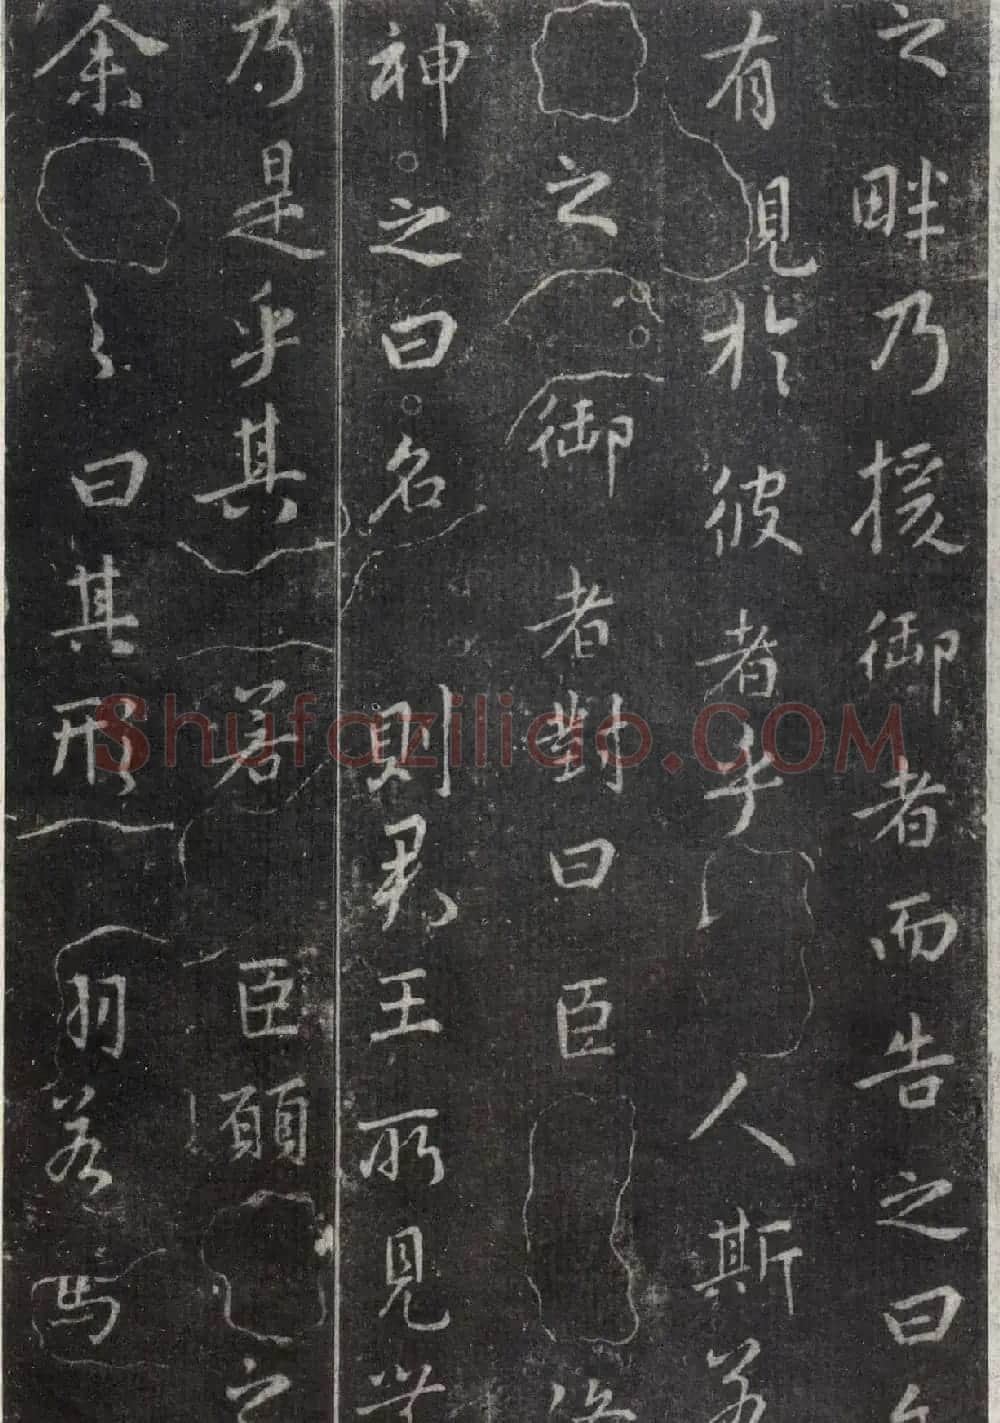 之畔乃援御者而告之曰
有見於彼者乎人斯若
之御者對曰臣
神之曰名則君王所見
乃是乎其若臣願之
余之曰其形羽若
Shufaziliao.COM